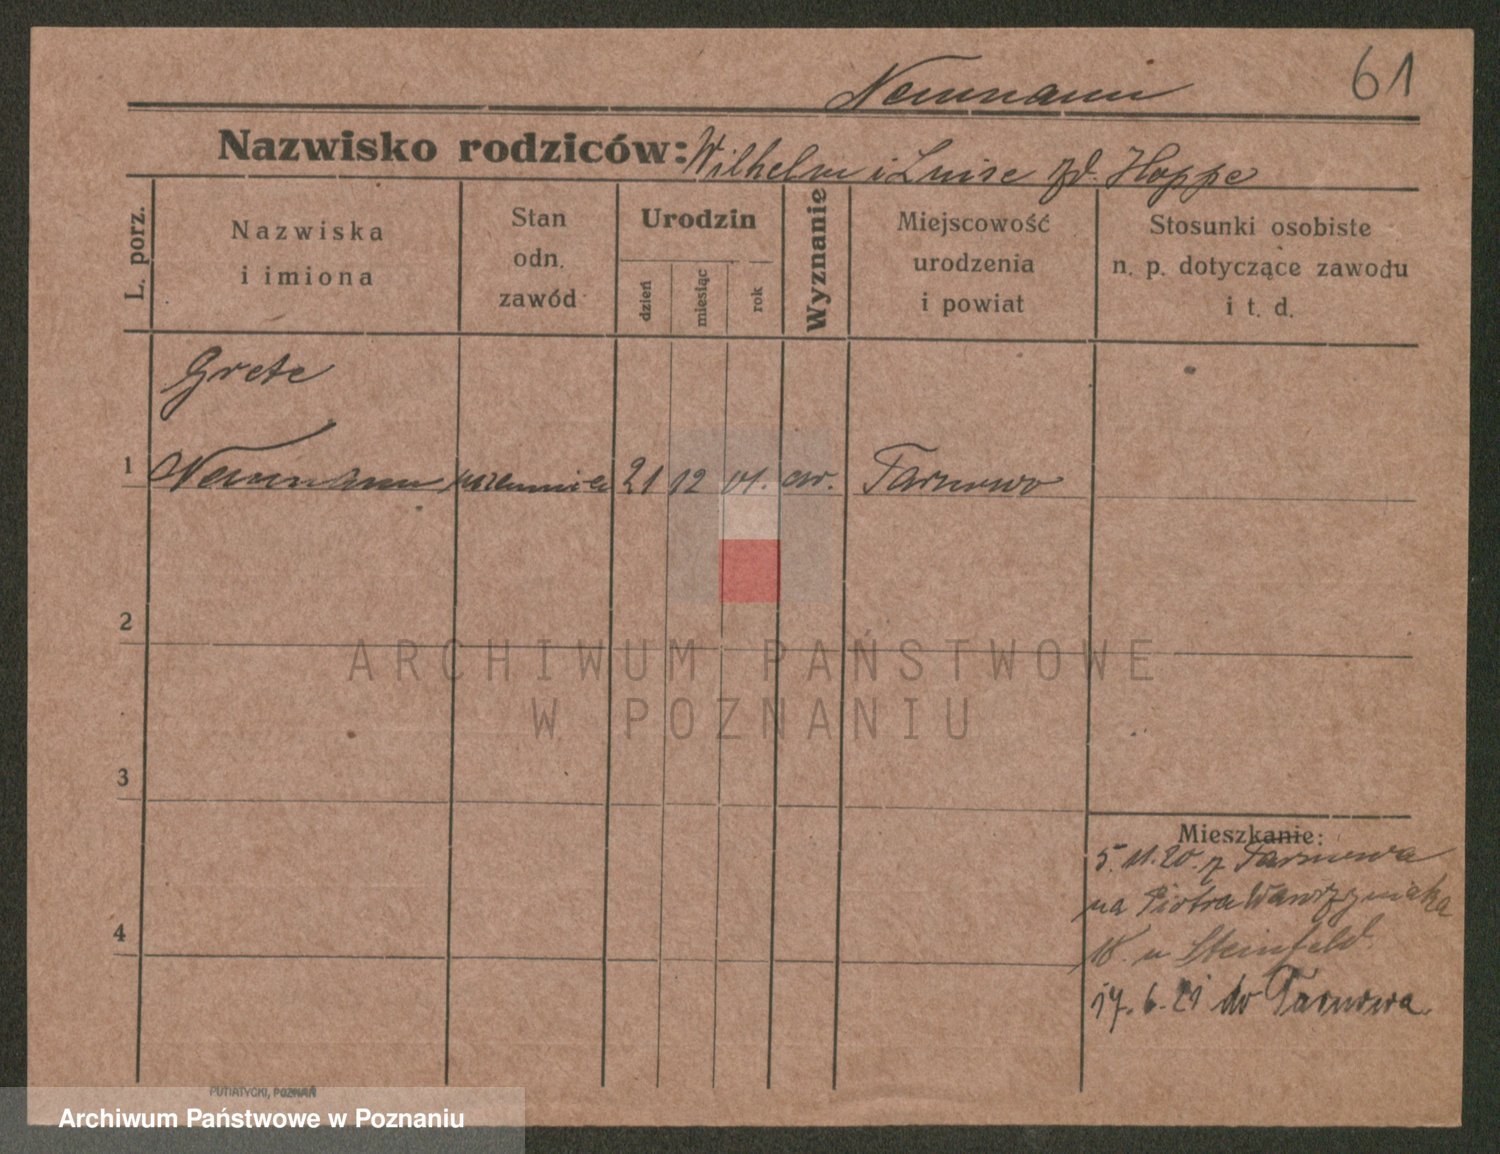 61
Neumann
Nazwisko rodziców: Wilhelm i Luise zd. Hoppe
L. porz.
Nazwiska
i imiona
Stan
odn.
zawód
Urodzin
dzień
miesiąc
rok
Wyznanie
Miejscowość
urodzenia
i powiat
Stosunki osobiste
n. p. dotyczące zawodu
i t. d.
Grete
1 Neumann uczennica 21 12 01. ew. Tarnowo
2
3
4
Mieszkanie:
5.11.20. z Tarnowa
na Piotra Wawrzyniaka
18. u Steinfeld.
17.6.21 do Tarnowa.
ARCHIWUM PAŃSTWOWE
W POZNANIU
PUTIATYCKI, POZNAŃ
Archiwum Państwowe w Poznaniu